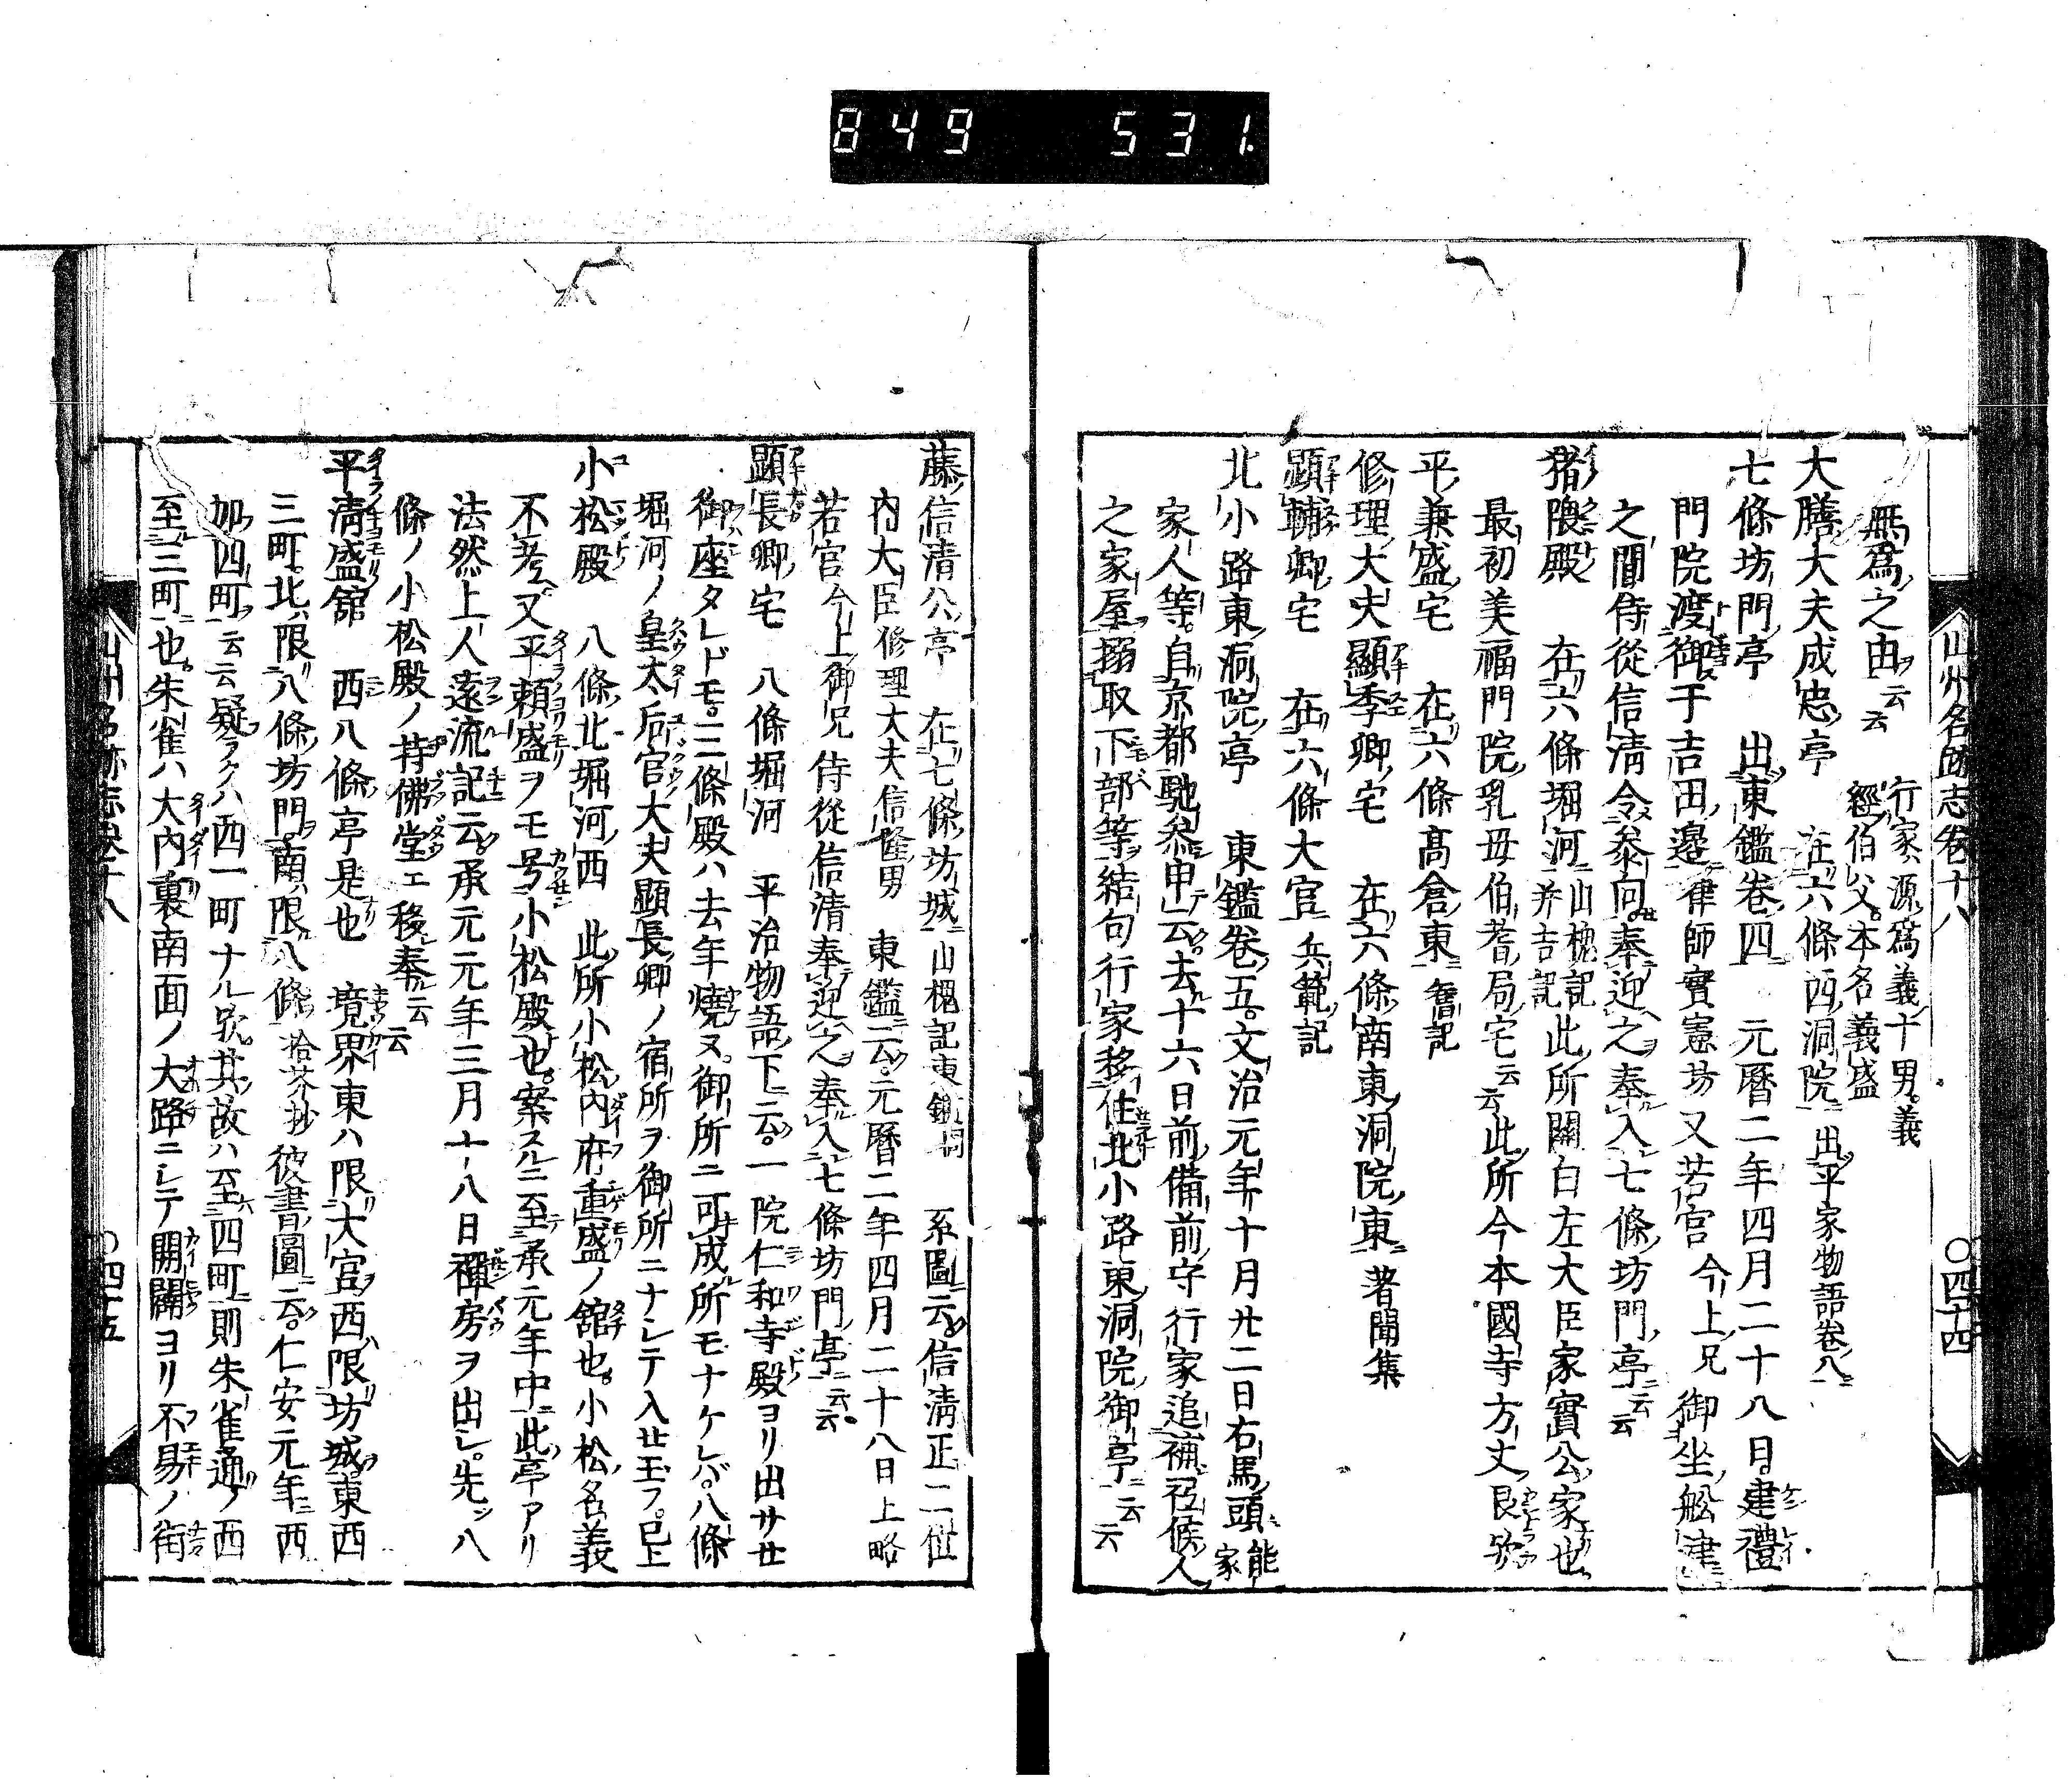 849 531.
山州名跡志巻十八 〇四十四
無為之由云云 行家源為義十男義
經伯父本名義盛
大膳大夫成忠亭 在六條西洞院出平家物語巻八
七條坊門亭 出東鑑巻四 元暦二年四月二十八日建禮
門院渡御于吉田邊律師實憲坊又若宮今上兄御坐舩津
之間侍從信清令参向奉迎之奉入七條坊門亭云云
猪隈殿 在六條堀河山槐記并吉記此所關白左大臣家實公家也
最初美福門院乳母伯耆局宅云云此所今本國寺方丈艮歟
平兼盛宅 在六條髙倉東 舊記
修理大夫顯季卿宅 在六條南東洞院東 著聞集
顕輔卿宅 在六條大宮 兵範記
北小路東洞院亭 東鑑巻五文治元年十月廿二日右馬頭能家
家人等自京都馳参申云去十六日前備前守行家追補祗候人
之家屋搦取下部等結句行家移住北小路東洞院御亭云云
藤信清公亭 在七條坊城山槐記東鑑 系圖云信清正二位
内大臣修理大夫信隆男 東鑑云元暦二年四月二十八日上略
若宮今上御兄侍從信清奉迎之奉入七條坊門亭云云
顕長卿宅 八條堀河 平治物語下云一院仁和寺殿ヨリ出サセ
御座タレドモ三條殿ハ去年焼ヌ御所ニ可成所モナケレバ八條
堀河ノ皇太后宮大夫顕長卿ノ宿所ヲ御所ニナシテ入セ玉フ已上
小松殿 八條北堀河西 此所小松内府重盛ノ舘也小松名義
不考又平頼盛ヲモ号小松殿也案スルニ至承元年中此亭アリ
法然上人遠流記云承元元年三月十八日禪房ヲ出シ先ツ八
條ノ小松殿ノ持佛堂エ移奉云云
平清盛舘 西八條亭是也 境界東ハ限大宮西限坊城東西
三町北ハ限八條坊門南限八條 拾芥抄 彼書圖云仁安元年西
加四町云云疑クハ西一町ナル歟其故ハ至四町則朱雀通ノ西
至三町也朱雀ハ大内裏南面ノ大路ニシテ開闢ヨリ不易ノ街
山州名跡志巻十八 〇四十五